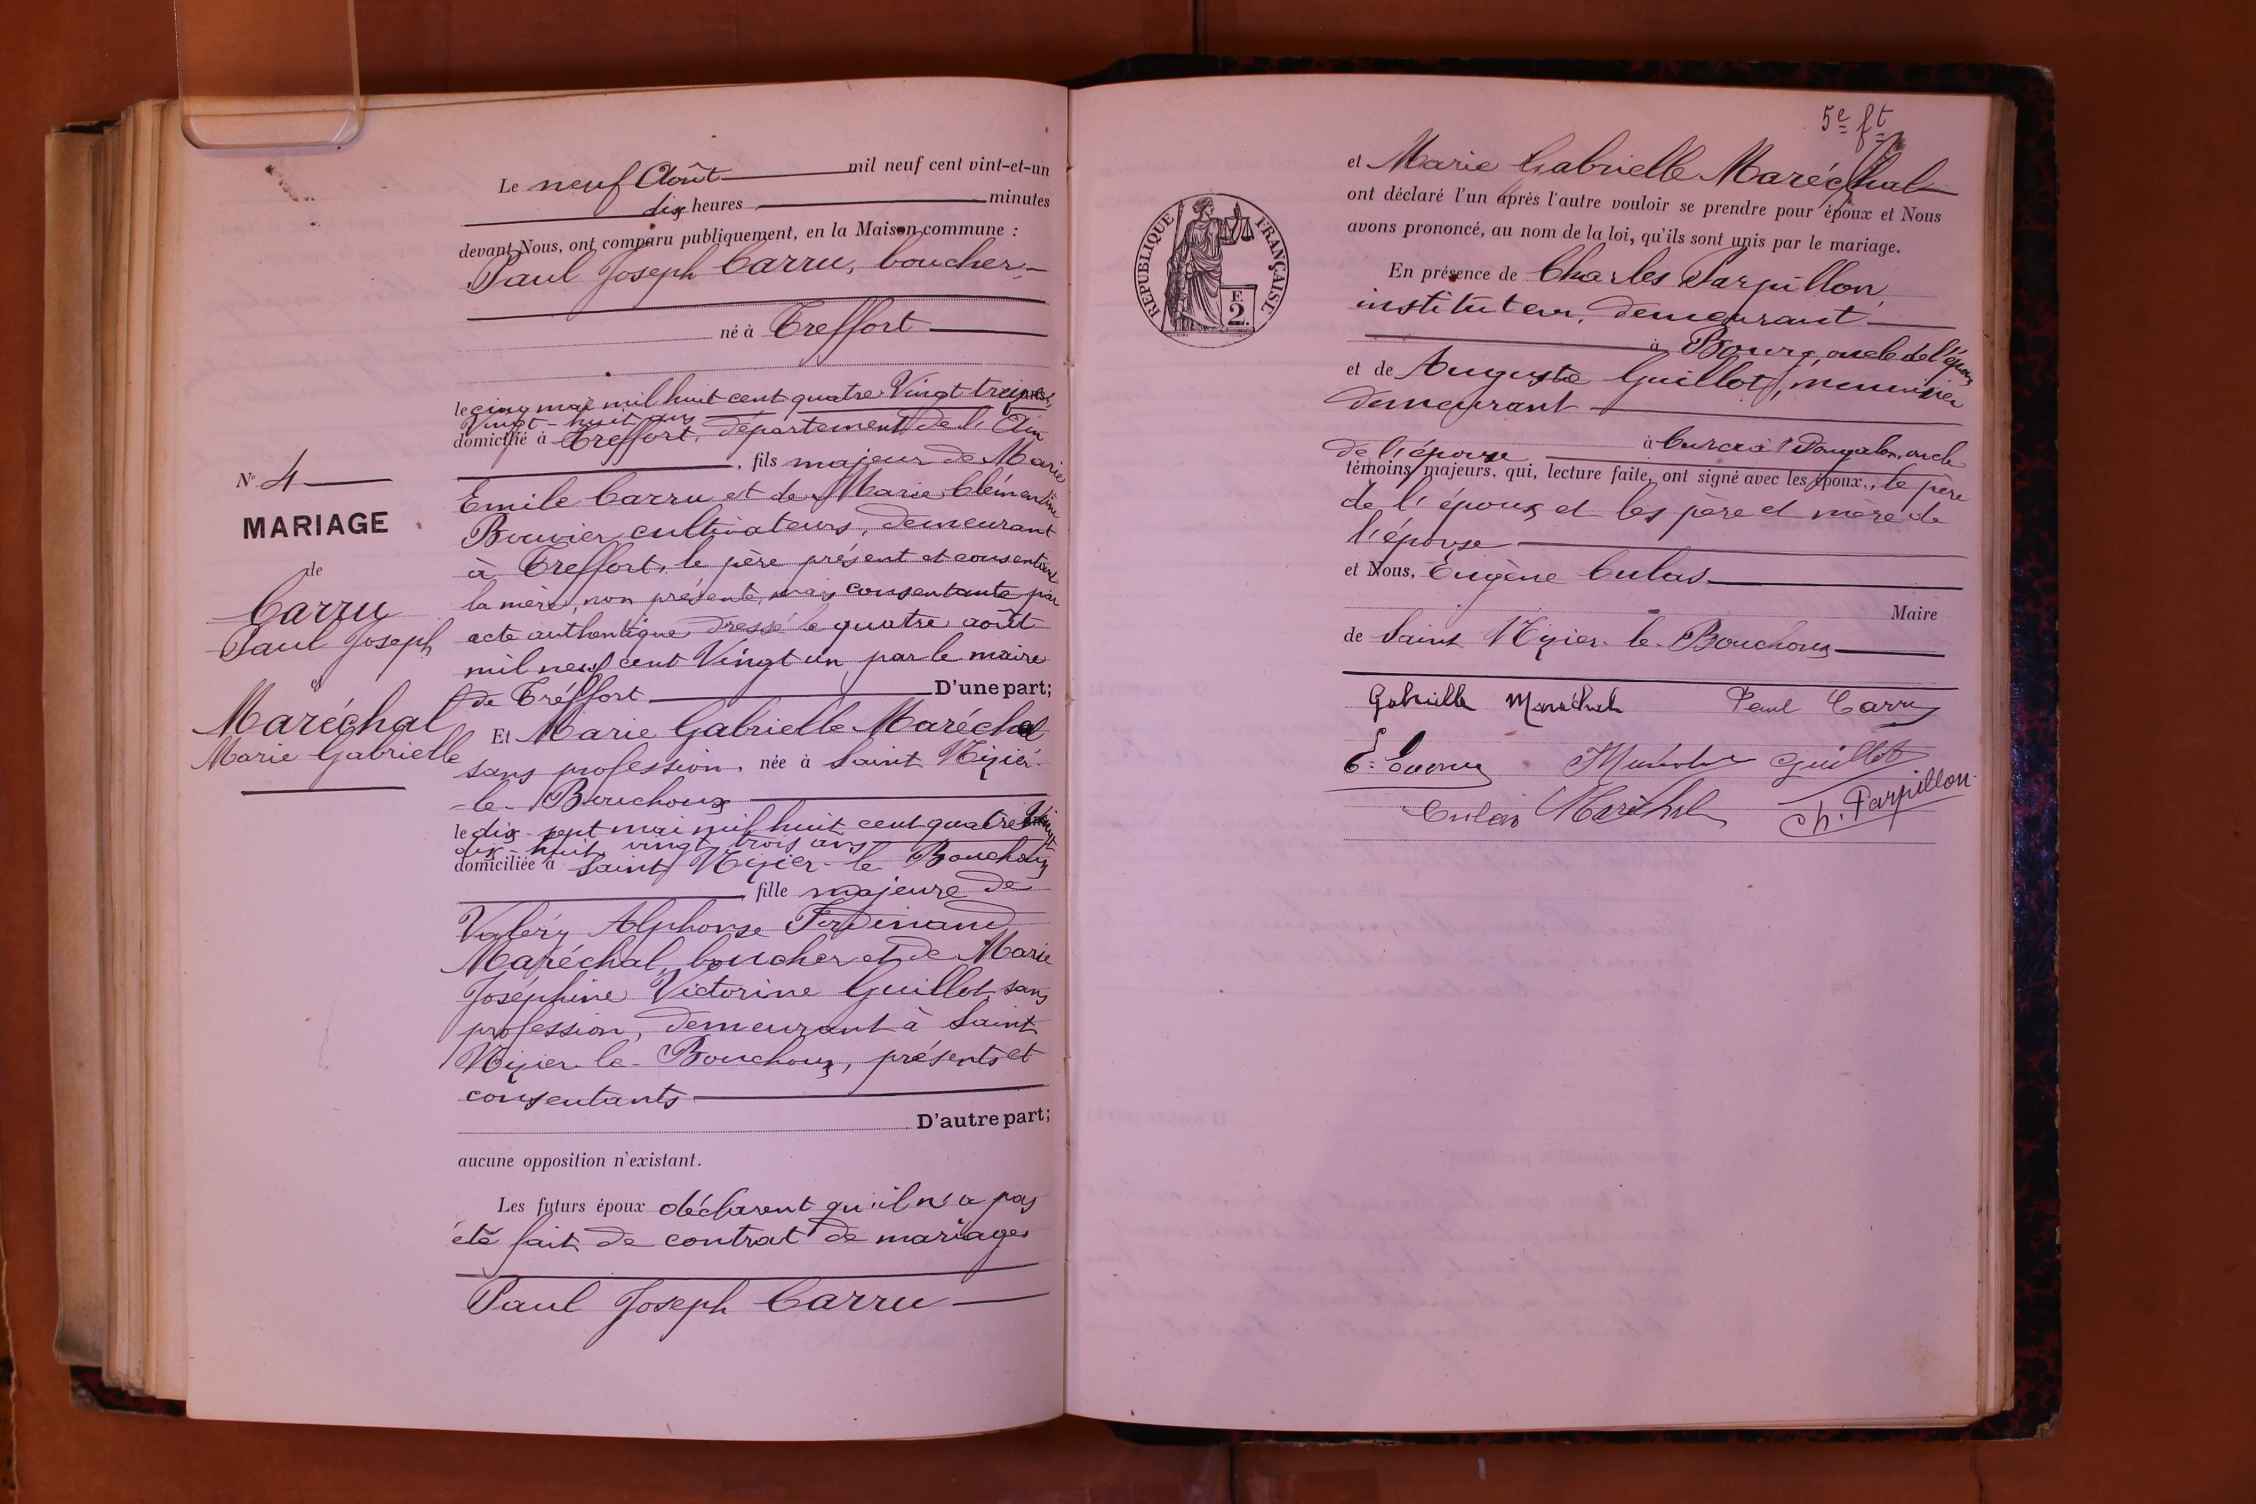 Le neuf Août mil neuf cent vint-et-un
dix heures minutes
devant Nous, ont comparu publiquement, en la Maison commune :
Paul Joseph Carru, boucher
né à Treffort
le cinq mai mil huit cent quatre Vingt treize
Vingt-huit ans
domicilié à Treffort, département de l'Ain
, fils majeur de Marie
Emile Carru et de Marie Clémentine
Bouvier cultivateurs, demeurant
à Treffort, le père présent et consentant
la mère, non présente, mais consentante par
acte authentique dressé le quatre août
mil neuf cent Vingt un par le maire
de Tréffort D'une part;
Et Marie Gabrielle Maréchal
sans profession, née à Saint Nizier-
-le-Bouchoux
le dix-sept mai mil huit cent quatre Vingt
dix-huit, vingt trois ans
domiciliée à Saint Nizier-le Bouchoux
, fille majeure de
Valéry Alphonse Ferdinand
Maréchal, boucher et de Marie
Joséphine Victorine Guillot sans
profession, demeurant à Saint
Nizier-le-Bouchoux, présents et
consentants
D'autre part;
aucune opposition n'existant.
Les futurs époux déclarent qu'il n'a pas
été fait de contrat de mariages
Paul Joseph Carru
No 4
MARIAGE
de
Carru
Paul Joseph
et
Maréchal
Marie Gabrielle
5e ft
et Marie Gabrielle Maréchal
ont déclaré l'un après l'autre vouloir se prendre pour époux et Nous
avons prononcé, au nom de la loi, qu'ils sont unis par le mariage.
En présence de Charles Parpillon,
instituteur, demeurant
à Bourg, oncle de l'époux
et de Auguste Guillot, menuisier
demeurant
à oncle
de l'épouse
témoins majeurs, qui, lecture faite, ont signé avec les époux, le père
de l'époux et les père et mère de
l'épouse
et Nous, Eugène Culas
Maire
de Saint Nizier-le-Bouchoux
RÉPUBLIQUE FRANÇAISE
E
2.
Gabrielle Maréchal Paul Carru
Guillot
Culas Maréchal Ch. Parpillon